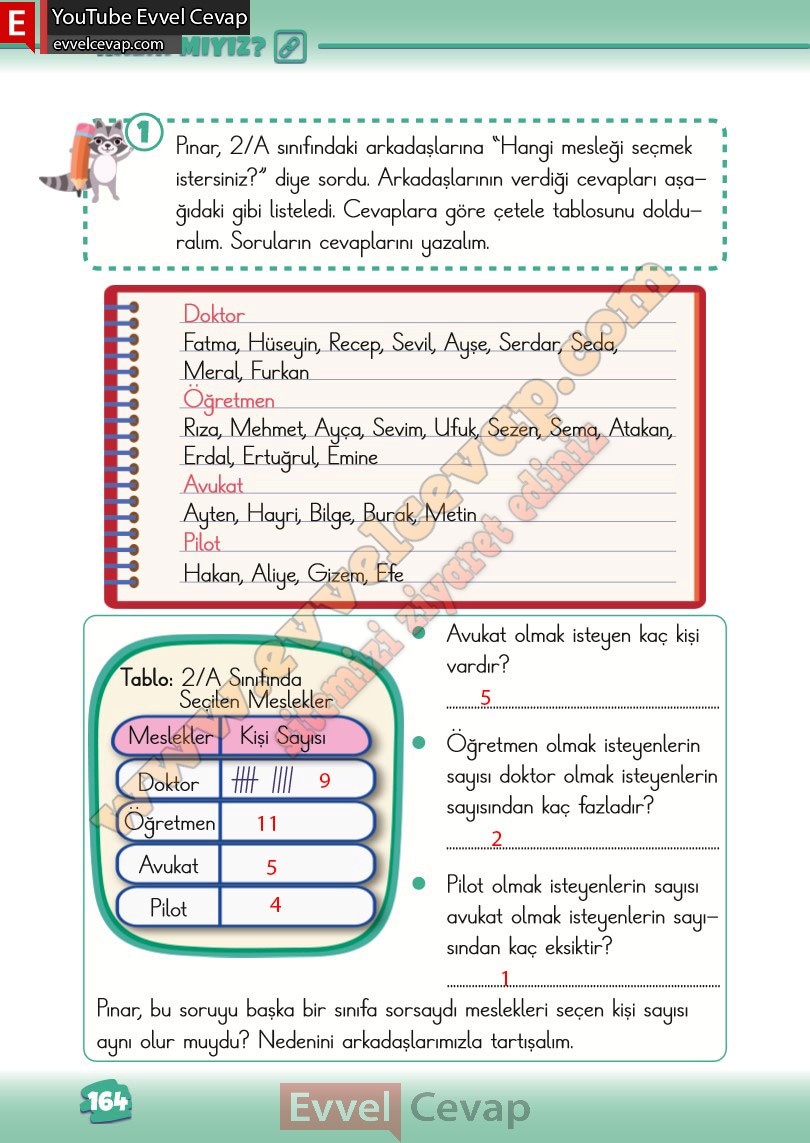 E
YouTube Evvel Cevap
evvelcevap.com
MIYIZ?
1
Pınar, 2/A sınıfındaki arkadaşlarına “Hangi mesleği seçmek
istersiniz?” diye sordu. Arkadaşlarının verdiği cevapları aşa–
ğıdaki gibi listeledi. Cevaplara göre çetele tablosunu doldu–
ralım. Soruların cevaplarını yazalım.
Doktor
Fatma, Hüseyin, Recep, Sevil, Ayşe, Serdar, Seda,
Meral, Furkan
Öğretmen
Rıza, Mehmet, Ayça, Sevim, Ufuk, Sezen, Sema, Atakan,
Erdal, Ertuğrul, Emine
Avukat
Ayten, Hayri, Bilge, Burak, Metin
Pilot
Hakan, Aliye, Gizem, Efe
www.evvelcevap.com
sitemizi ziyaret ediniz
Tablo: 2/A Sınıfında
Seçilen Meslekler
Meslekler Kişi Sayısı
Doktor 9
Öğretmen 11
Avukat 5
Pilot 4
Avukat olmak isteyen kaç kişi
vardır?
5
Öğretmen olmak isteyenlerin
sayısı doktor olmak isteyenlerin
sayısından kaç fazladır?
2
Pilot olmak isteyenlerin sayısı
avukat olmak isteyenlerin sayı–
sından kaç eksiktir?
1
Pınar, bu soruyu başka bir sınıfa sorsaydı meslekleri seçen kişi sayısı
aynı olur muydu? Nedenini arkadaşlarımızla tartışalım.
164
Evvel Cevap